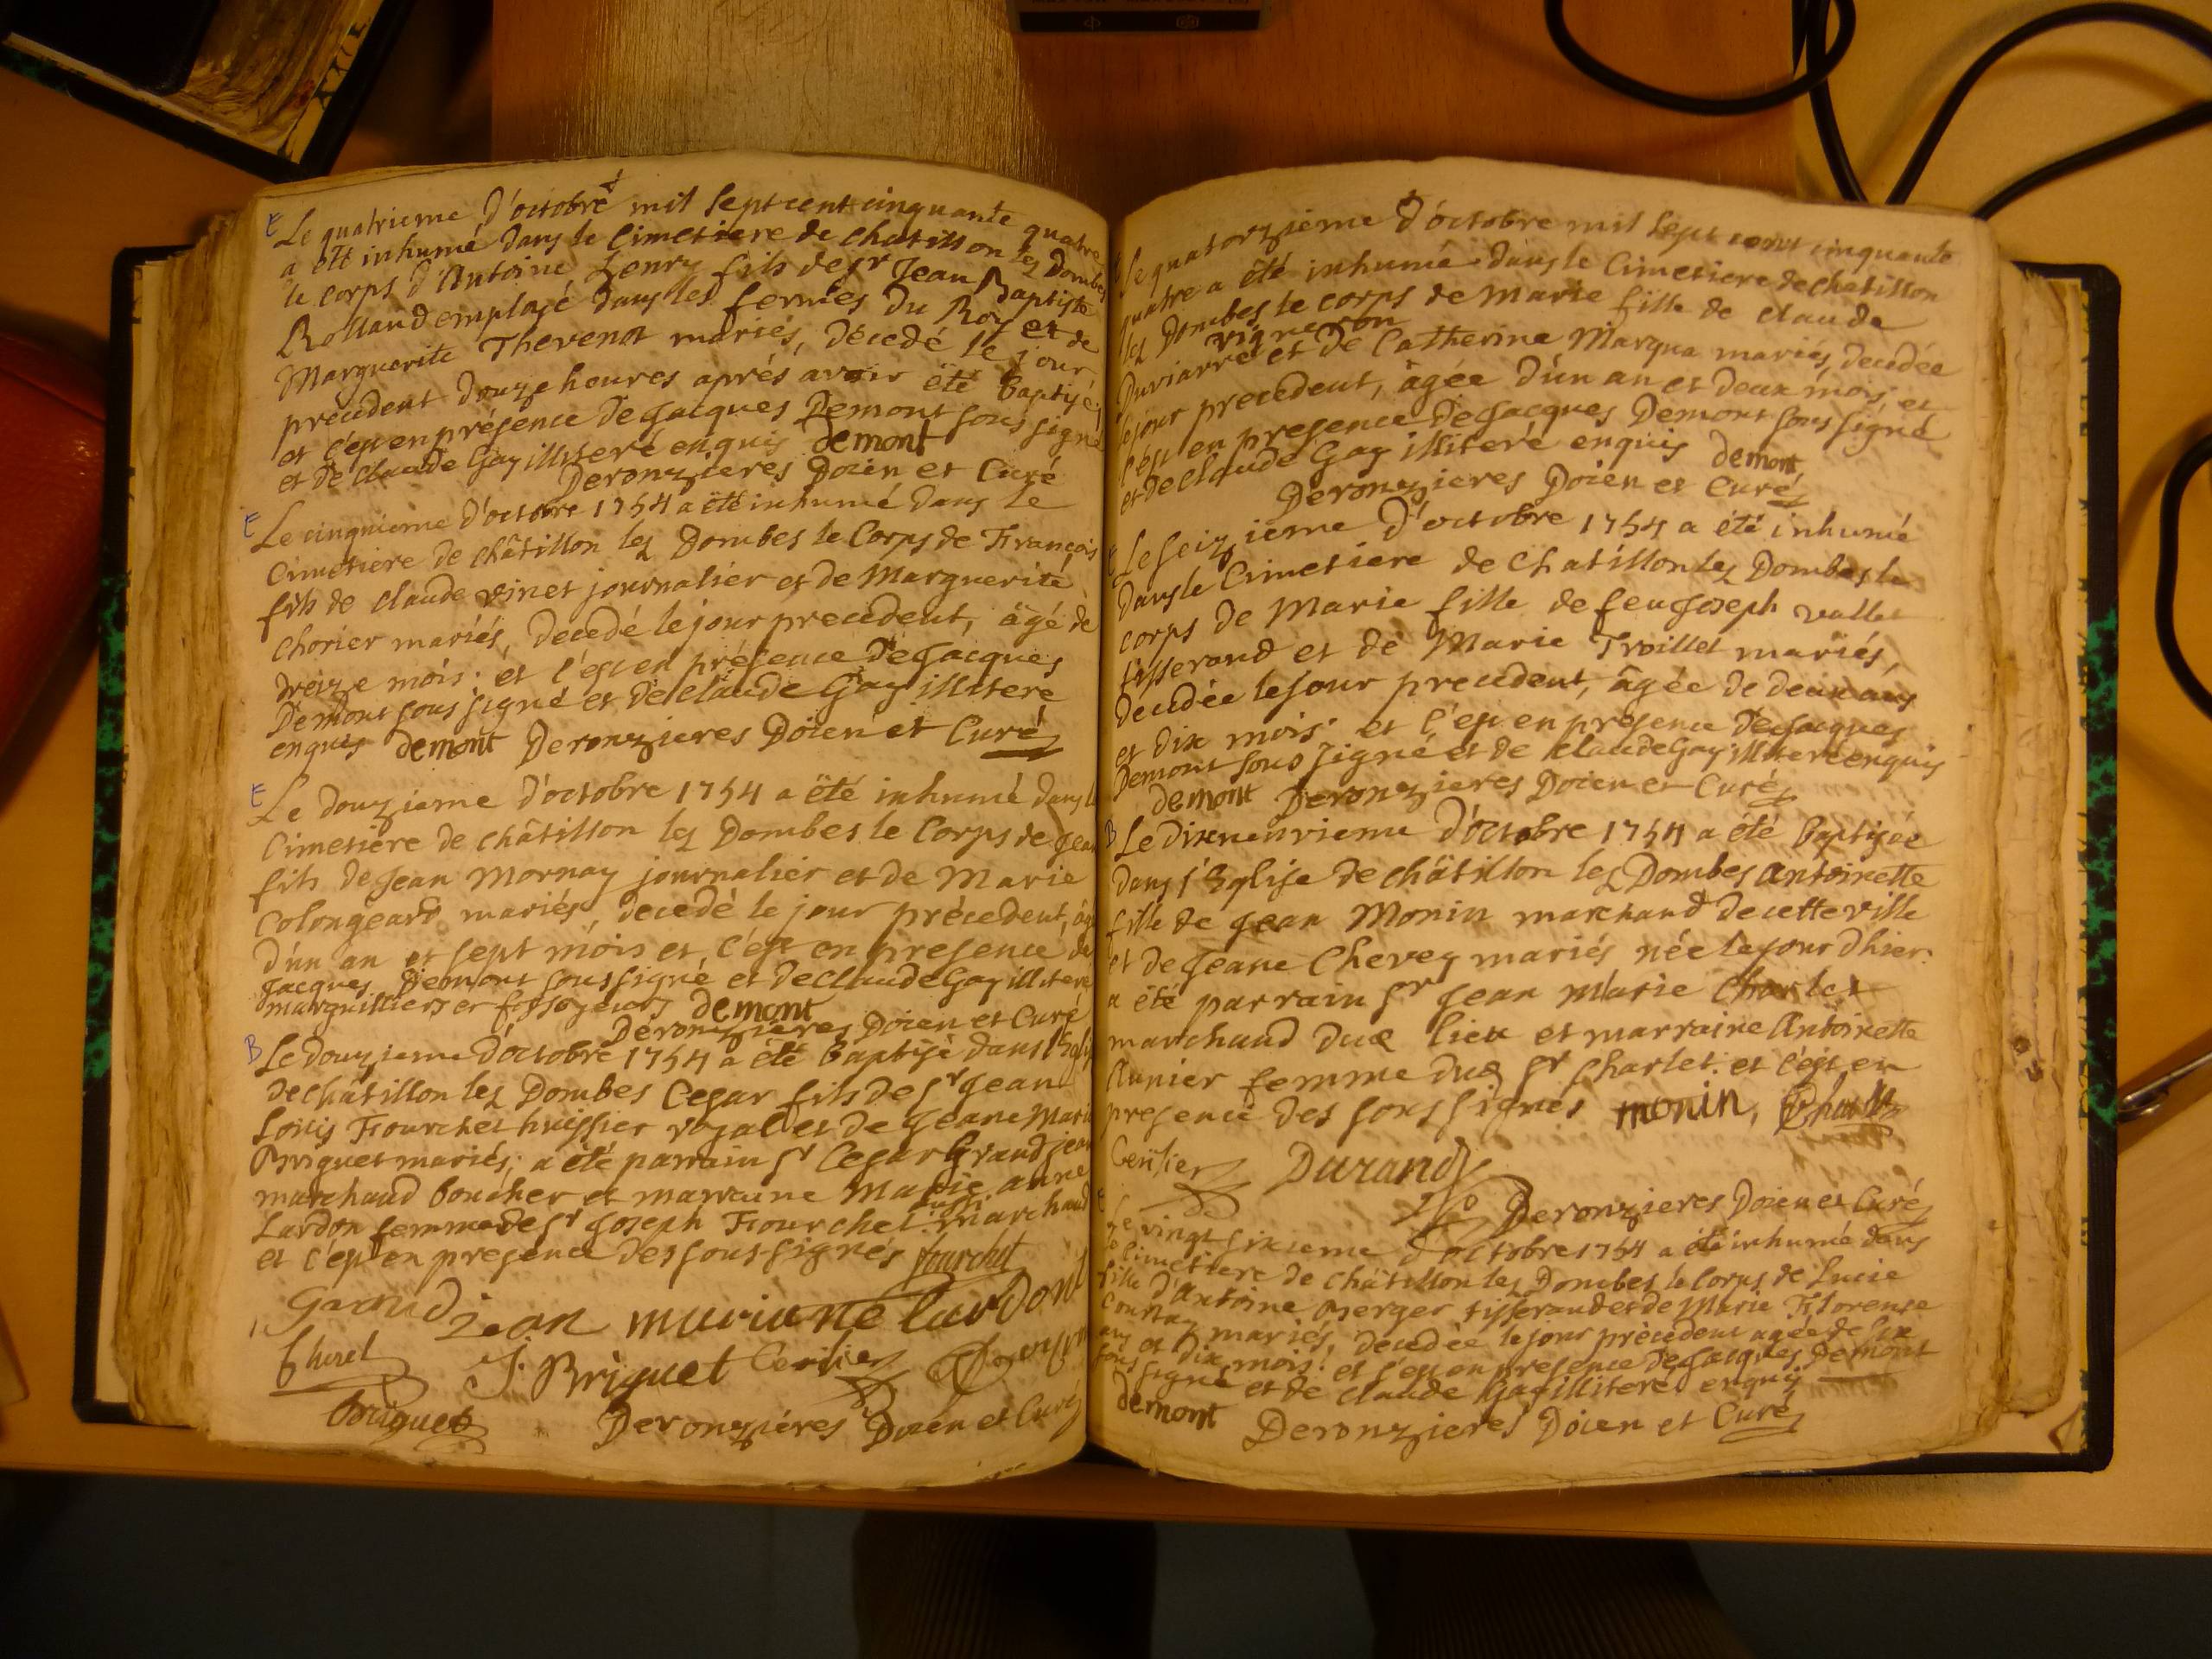 E Le quatrieme d'octobre mil sept cent cinquante quatre
a été inhumé dans le Cimetiere de chatillon lez Dombes
le corps d'Antoine henry fils de sr Jean Baptiste
Rolland employé dans les fermes du Roy et de
Marguerite Thevenot mariés, décedé le jour
précedent douze heures aprés avoir été Baptisé,
et c'est en présence de Jacques Demont sous signé
et de claude Gay illiteré enquis demont
Deronzieres Doien et Curé
E Le cinquieme d'octobre 1754 a été inhumé dans le
Cimetiere de châtillon lez Dombes le Corps de François
fils de claude vinet journalier et de Marguerite
chorier mariés, decedé le jour precedent, âgé de
treize mois. et c'est en présence de Jacques
Demont sous signé et de claude Gay illiteré
enquis demont Deronzieres Doien et Curé
E Le douzieme d'octobre 1754 a été inhumé dans le
Cimetiere de châtillon lez Dombes le Corps de Jean
fils de Jean Mornay journalier et de Marie
Colongeard mariés, decedé le jour précedent, âgé
d'un an et sept mois et c'est en presence de
Jacques Demont sous signé et de claude Gay illiteré
marguilliers et fossoyeurs demont
Deronzieres Doien et Curé
B Le douzieme d'octobre 1754 a été Baptisé dans l'Eglise
de châtillon lez Dombes Cesar fils de sr Jean
Loüis Fourchet huissier royal et de Jeane Marie
Briguet mariés; a été parrain sr Cesar Grandjean
marchand boucher et marraine Marie anne
Lardon femme de sr Joseph Fourchet aussi marchand
et c'est en presence des sous-signés fourchet
Grandjean muriane lardont
J. Briguet Cerisier
briguet Deronziéres Doien et Curé
Le quatorzieme d'octobre mil sept cent cinquante
quatre a été inhumé dans le Cimetiere de chatillon
lez Dombes le corps de Marie fille de claude
vigneron
Duviarre et de Catherine Marqua mariés, decedée
le jour precedent, âgée d'un an et deux mois, et
c'est en presence de Jacques Demont sous signé
et de claude Gay illiteré enquis demont
Deronzieres Doien et Curé
E Le seizieme d'octobre 1754 a été inhumé
dans le Cimetiere de Chatillon lez Dombes le
corps de Marie fille de feu Joseph vallet
tisserand et de Marie Troillet mariés,
decedée le jour precedent, âgée de deux ans
et dix mois. et c'est en présence de Jacques
Demont sous signé et de claude Gay illiteré enquis
demont Deronzieres Doien et Curé
B Le dixneuvieme d'octobre 1754 a été Baptisée
dans l'Eglise de châtillon lez Dombes Antoinette
fille de Jean Monin marchand de cette ville
et de Jeane Chevey mariés née le jour d'hier.
a été parrain sr Jean Marie Charlet
marchand dud lieu et marraine Antoinette
Aunier femme dud sr Charlet. et c'est en
presence des sous signés monin, Charlet
Cerisier Durand
Deronzieres Doien et Curé
E Le vingt sixieme d'octobre 1754 a été inhumé dans
le Cimetiere de châtillon lez Dombes le Corps de Lucie
fille d'Antoine Berger tisserand et de Marie Florense
Courtay mariés, decedée le jour précedent agée de six
ans et dix mois. et c'est en presence de Jacques Demont
sous signé et de claude Gay illiteré enquis
demont Deronzieres Doien et Curé